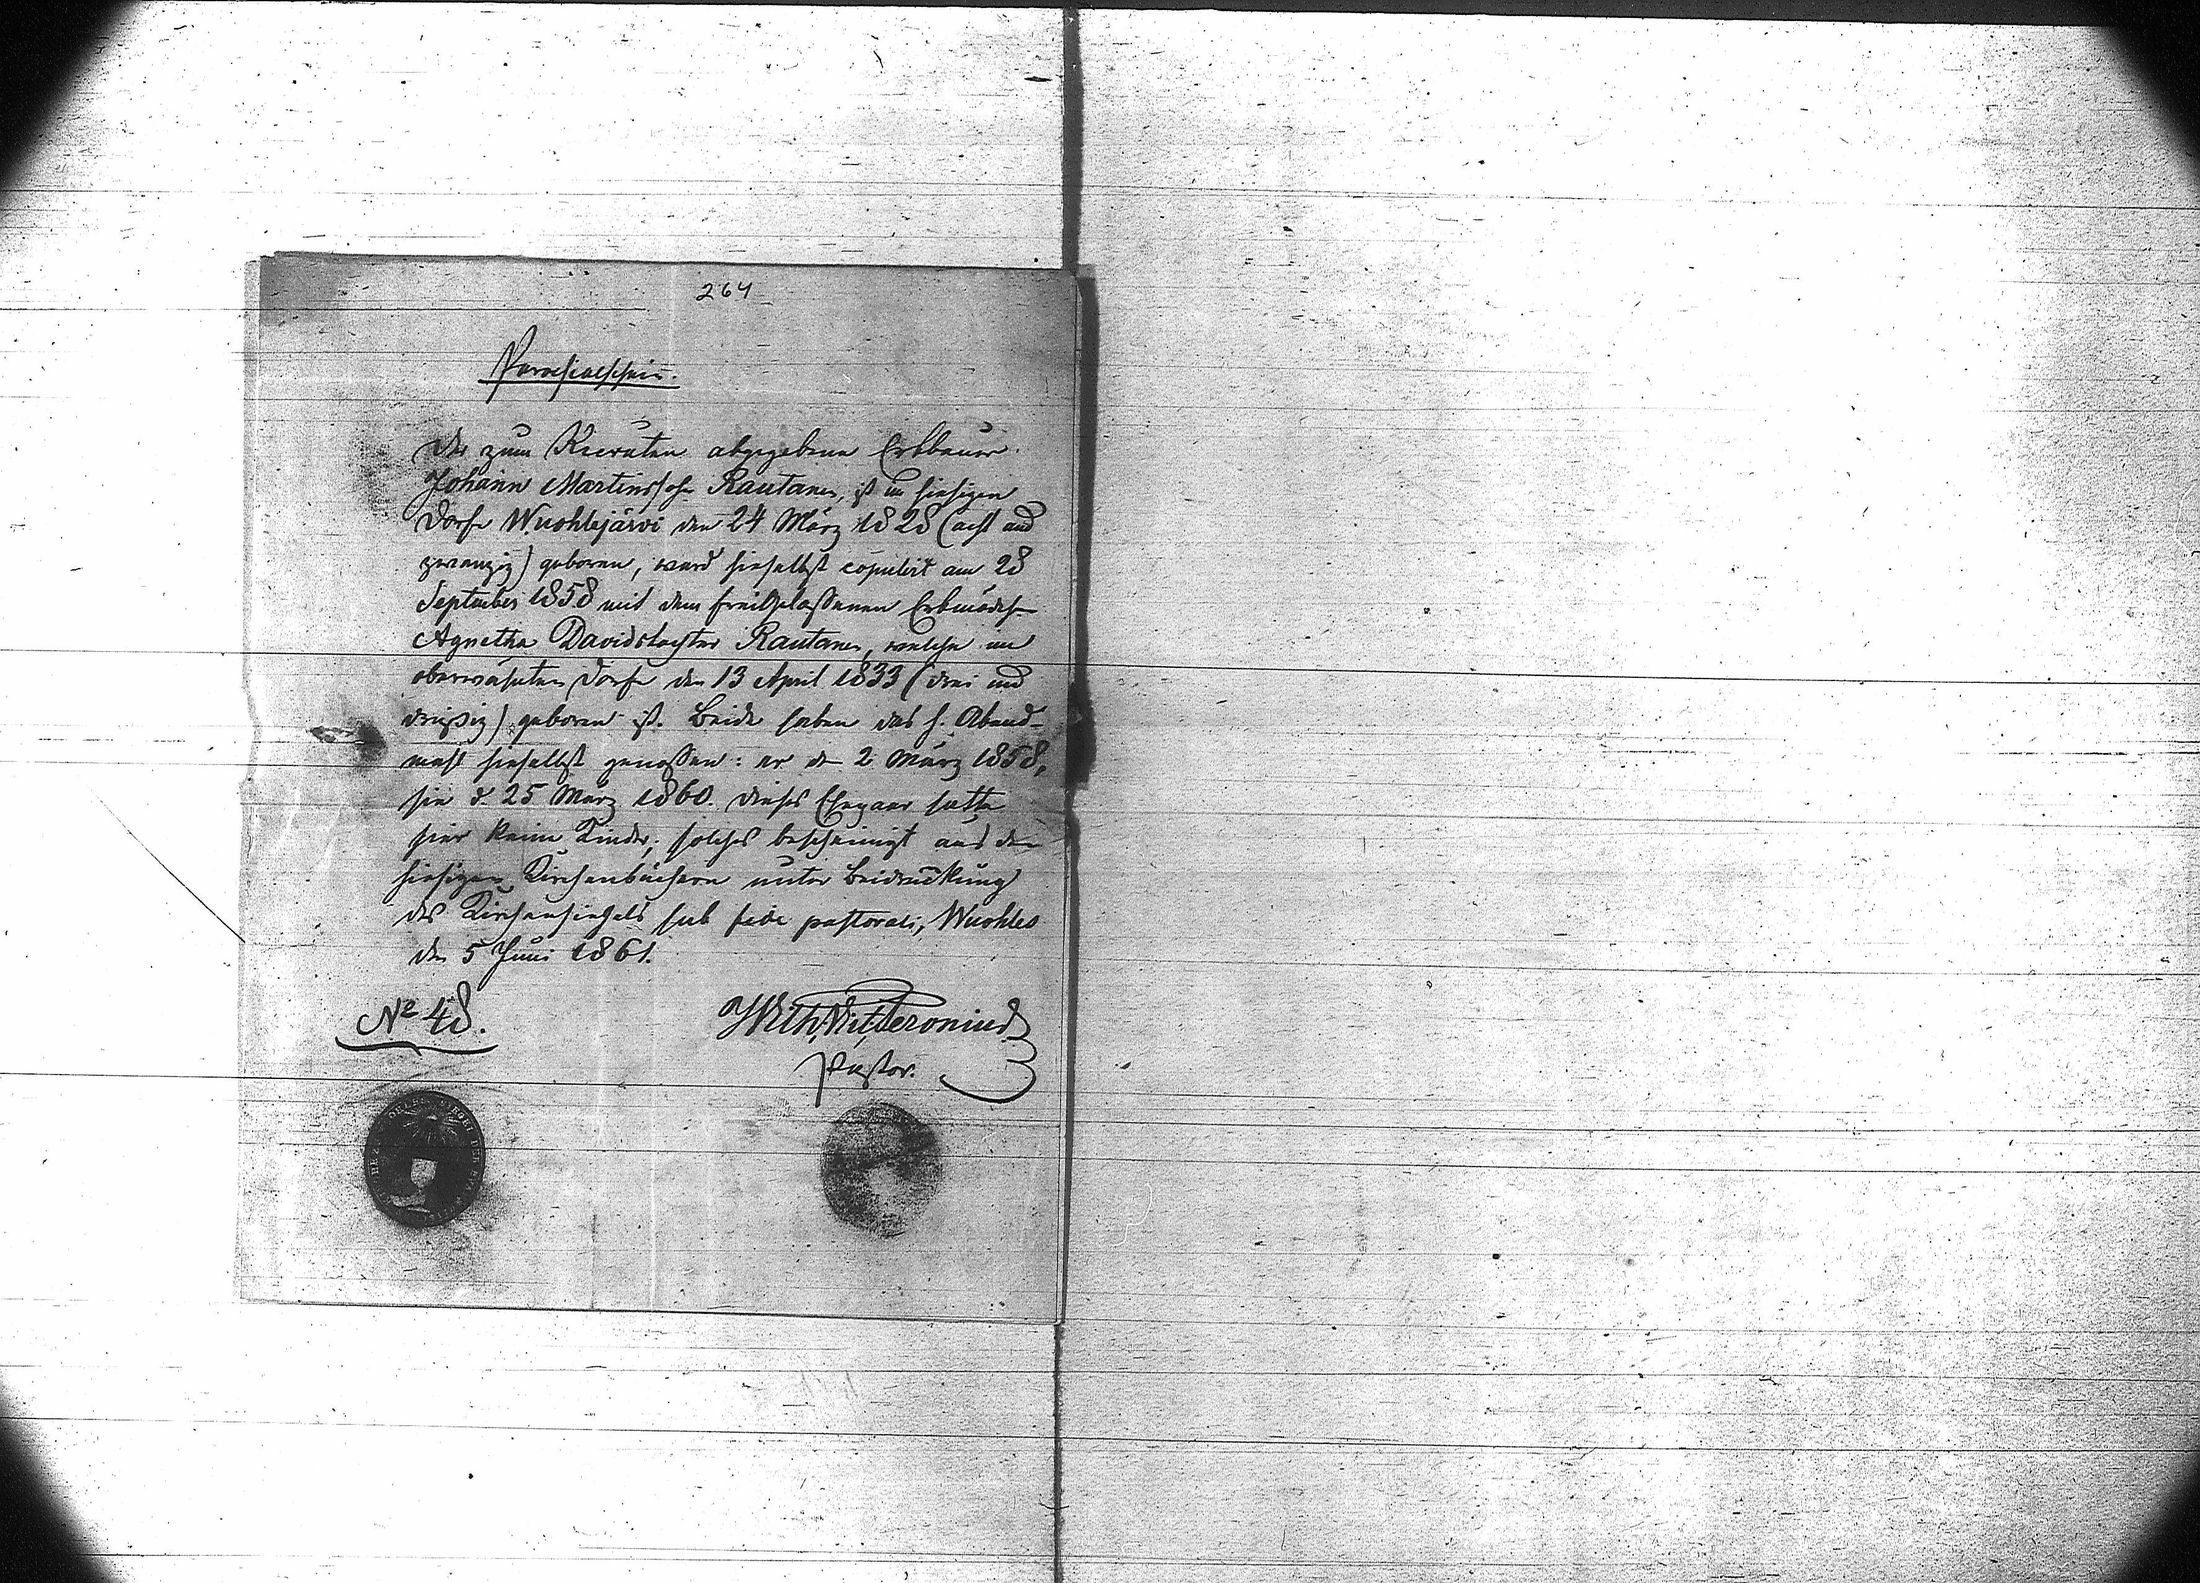 264
Parochialschein.
Der zum Recruten abgegebene Erbbauer
Johann Martinssohn Rautanen, ist im hiesigen
Dorfe Wuohlejärvi den 24 März 1828 (acht und
zwanzig) geboren, ward hieselbst copulirt am 28
September 1858 mit dem freigelassenen Erbmädchen
Agnetha Davidstochter Rautanen, welche im
oberwähnten Dorfe den 13 April 1833 (drei und
dreißig) geboren ist. Beide haben das h. Abend-
mahl hieselbst genossen: er den 2 März 1858,
sie d. 25 März 1860. Dieses Ehepaar hatte
hier keine Kinder; solches bescheinigt aus den
hiesigen Kirchenbüchern unter Beidrückung
des Kirchensiegels sub fide pastorali, Wuohles
den 5 Juni 1861.
№ 48.
Pastor.